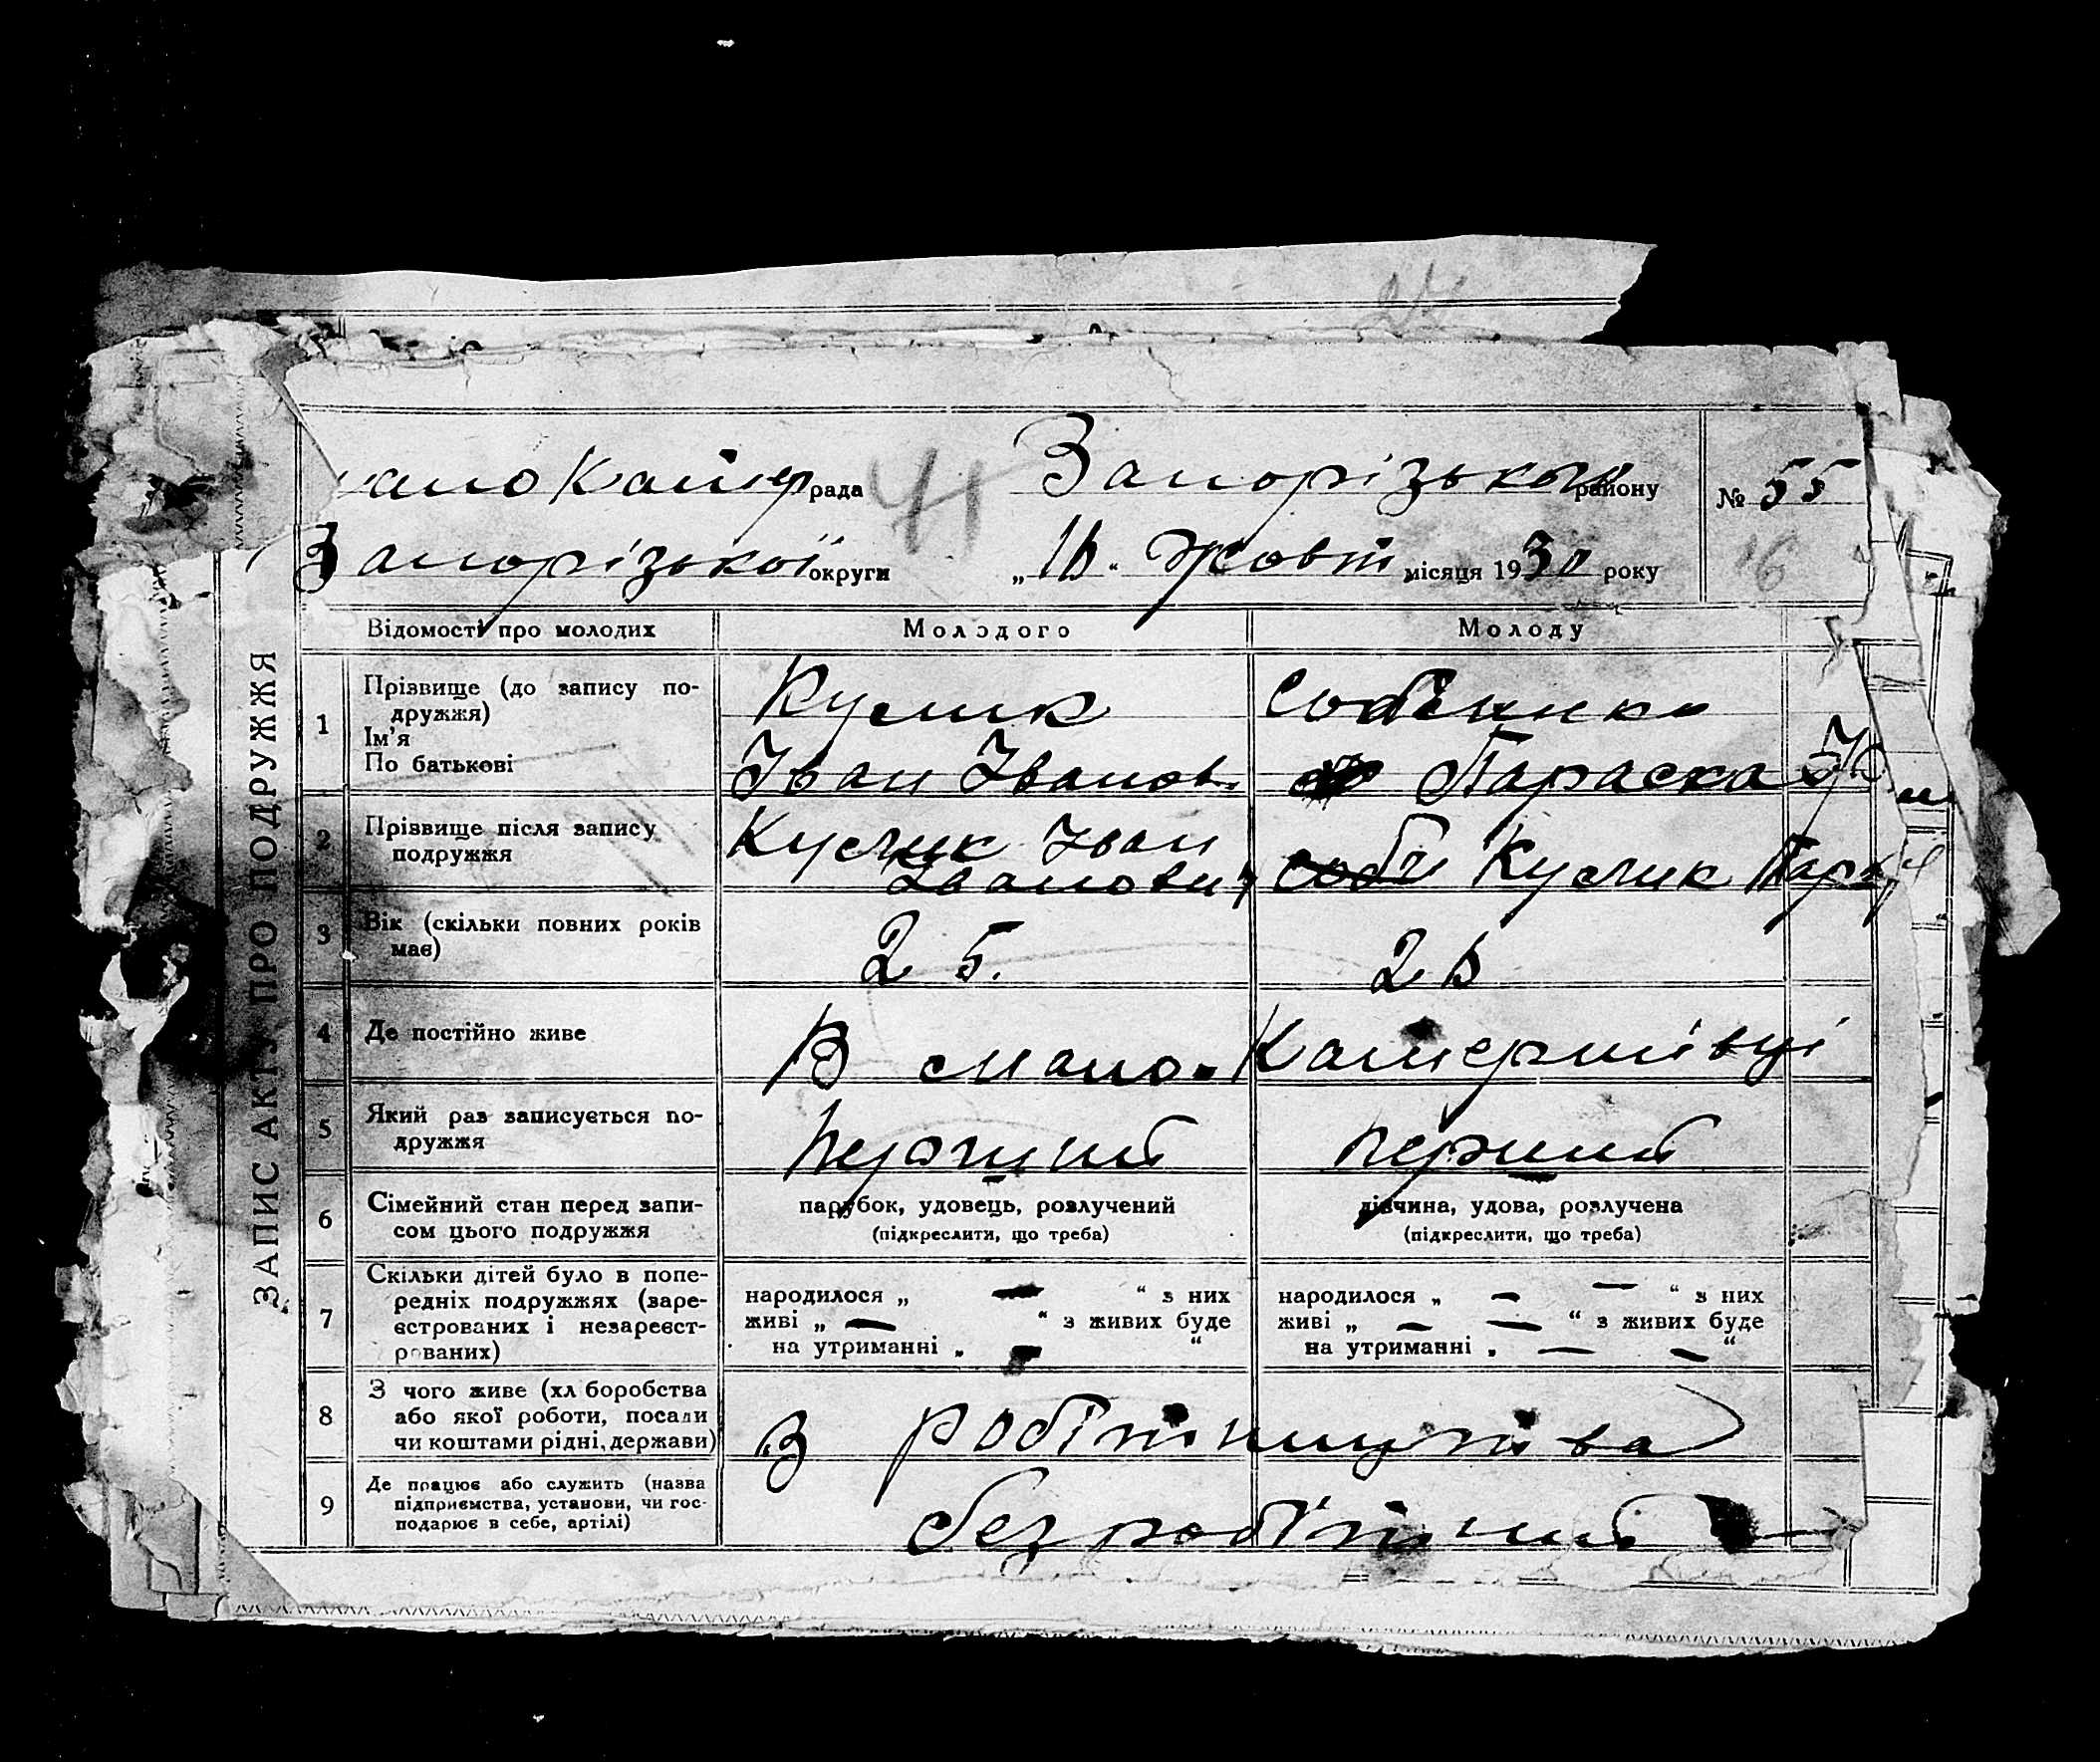 ЗАПИС АКТУ ПРО ПОДРУЖЖЯ
рада 41 Запорізького району № 55
Запорізької округи „ “ Жовт місяця 1930 року 16
Відомості про молодих Молодого Молоду
1 Прізвище (до запису по-
дружжя)
Ім'я
По батькові
Кулик
Іван Іванов.
Параска
2 Прізвище після запису
подружжя
Кулик Іван
Іванович
Собч Кулик Пара
3 Вік (скільки повних років
має)
25.
4 Де постійно живе
В мало-Катеринівці
5 Який раз записується по-
дружжя
перший перший
6 Сімейний стан перед запи-
сом цього подружжя
парубок, удовець, розлучений
(підкреслити, що треба)
дівчина, удова, розлучена
(підкреслити, що треба)
7 Скільки дітей було в попе-
редніх подружжях (заре-
єстрованих і незареєст-
рованих)
народилося „ — “ з них
живі „ — “ з живих буде
на утриманні „ — “
народилося „ — — “ з них
живі „ — — “ з живих буде
на утриманні „ — — “
8 З чого живе (хліборобства
або якої роботи, посади
чи коштами рідні, держави)
З робітництва
9 Де працює або служить (назва
підприємства, установи, чи гос-
подарює в себе, артілі)
безробітний —